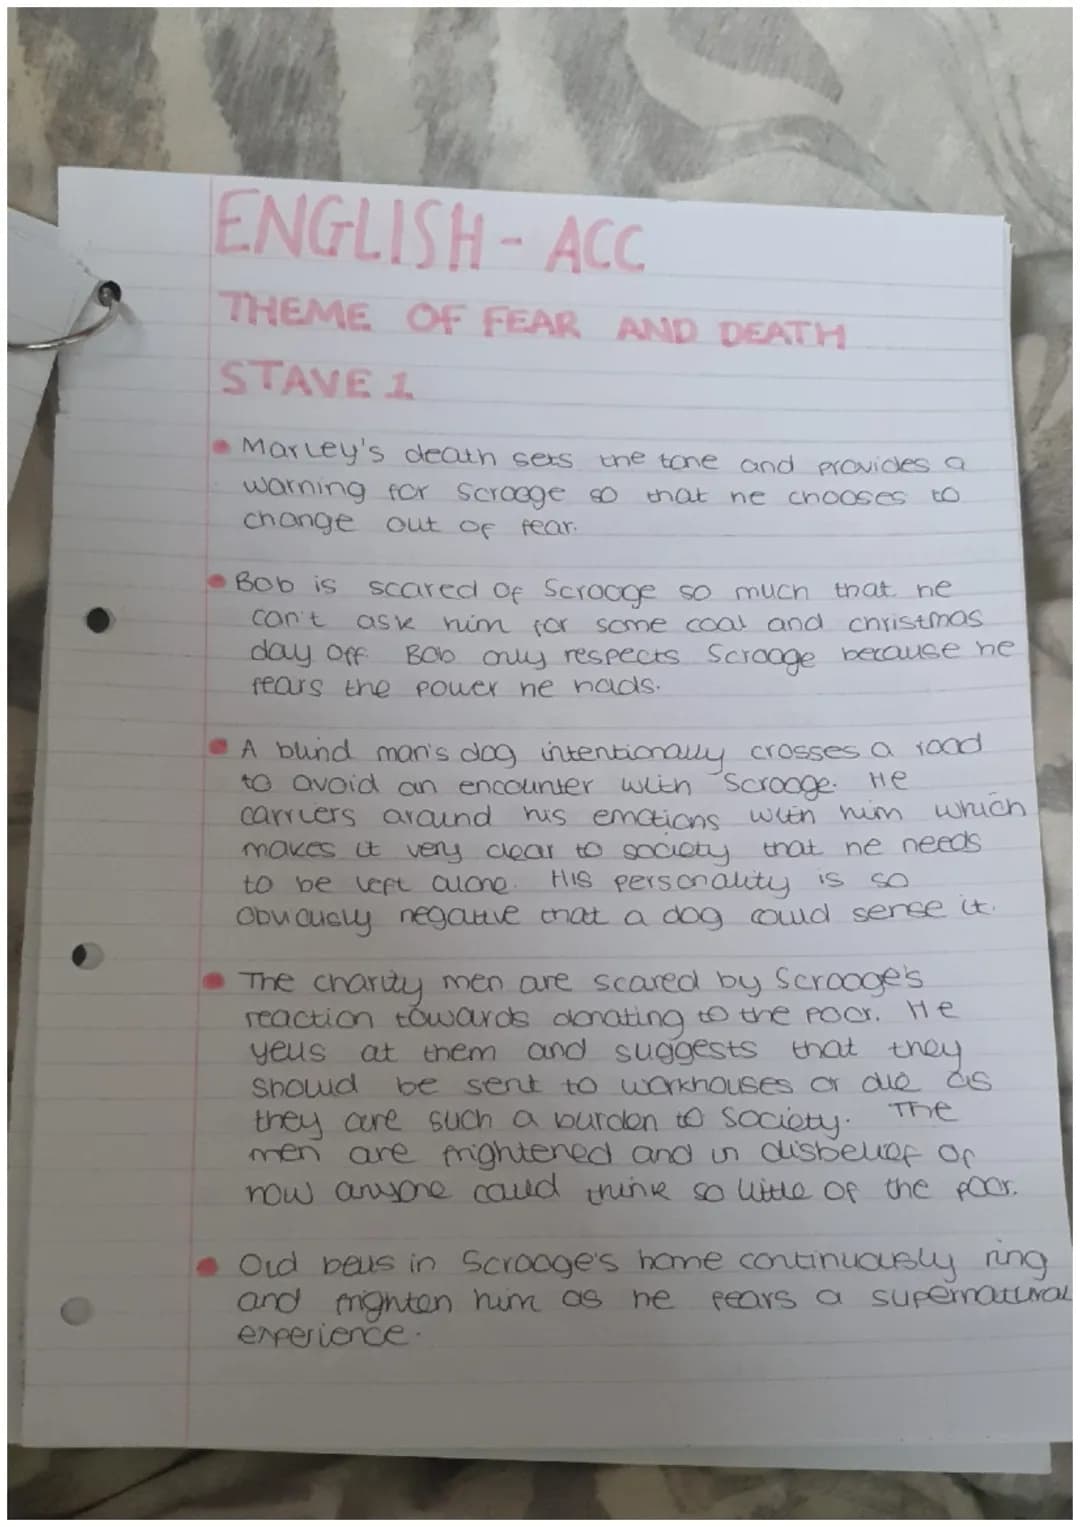 ENGLISH - ACC
THEME OF FEAR AND DEATH
STAVE 1
• Marley's death sets the tone and provides a
warning for Scrooge so that he chooses to
change out of fear.
• Bob is scared of Scrooge so much that he
can't ask him for some coal and christmas
day off. Bob only respects Scrooge because he
fears the power he holds.
• A blind man's dog intentionally crosses a road
to avoid an encounter with Scrooge. He
carriers around his emotions with him which
makes it very clear to society that he needs
to be left alone. His personality is so
obviously negative that a dog could sense it.
• The charity men are scared by Scrooge's
reaction towards donating to the poor. He
yells at them and suggests that they
should be sent to workhouses or die as
they are such a burden to society. The
men are frightened and in disbelief of
how anyone could think so little of the poor.
• Old bells in Scrooge's home continuously ring
and frighten him as he fears a supernatural
experience.